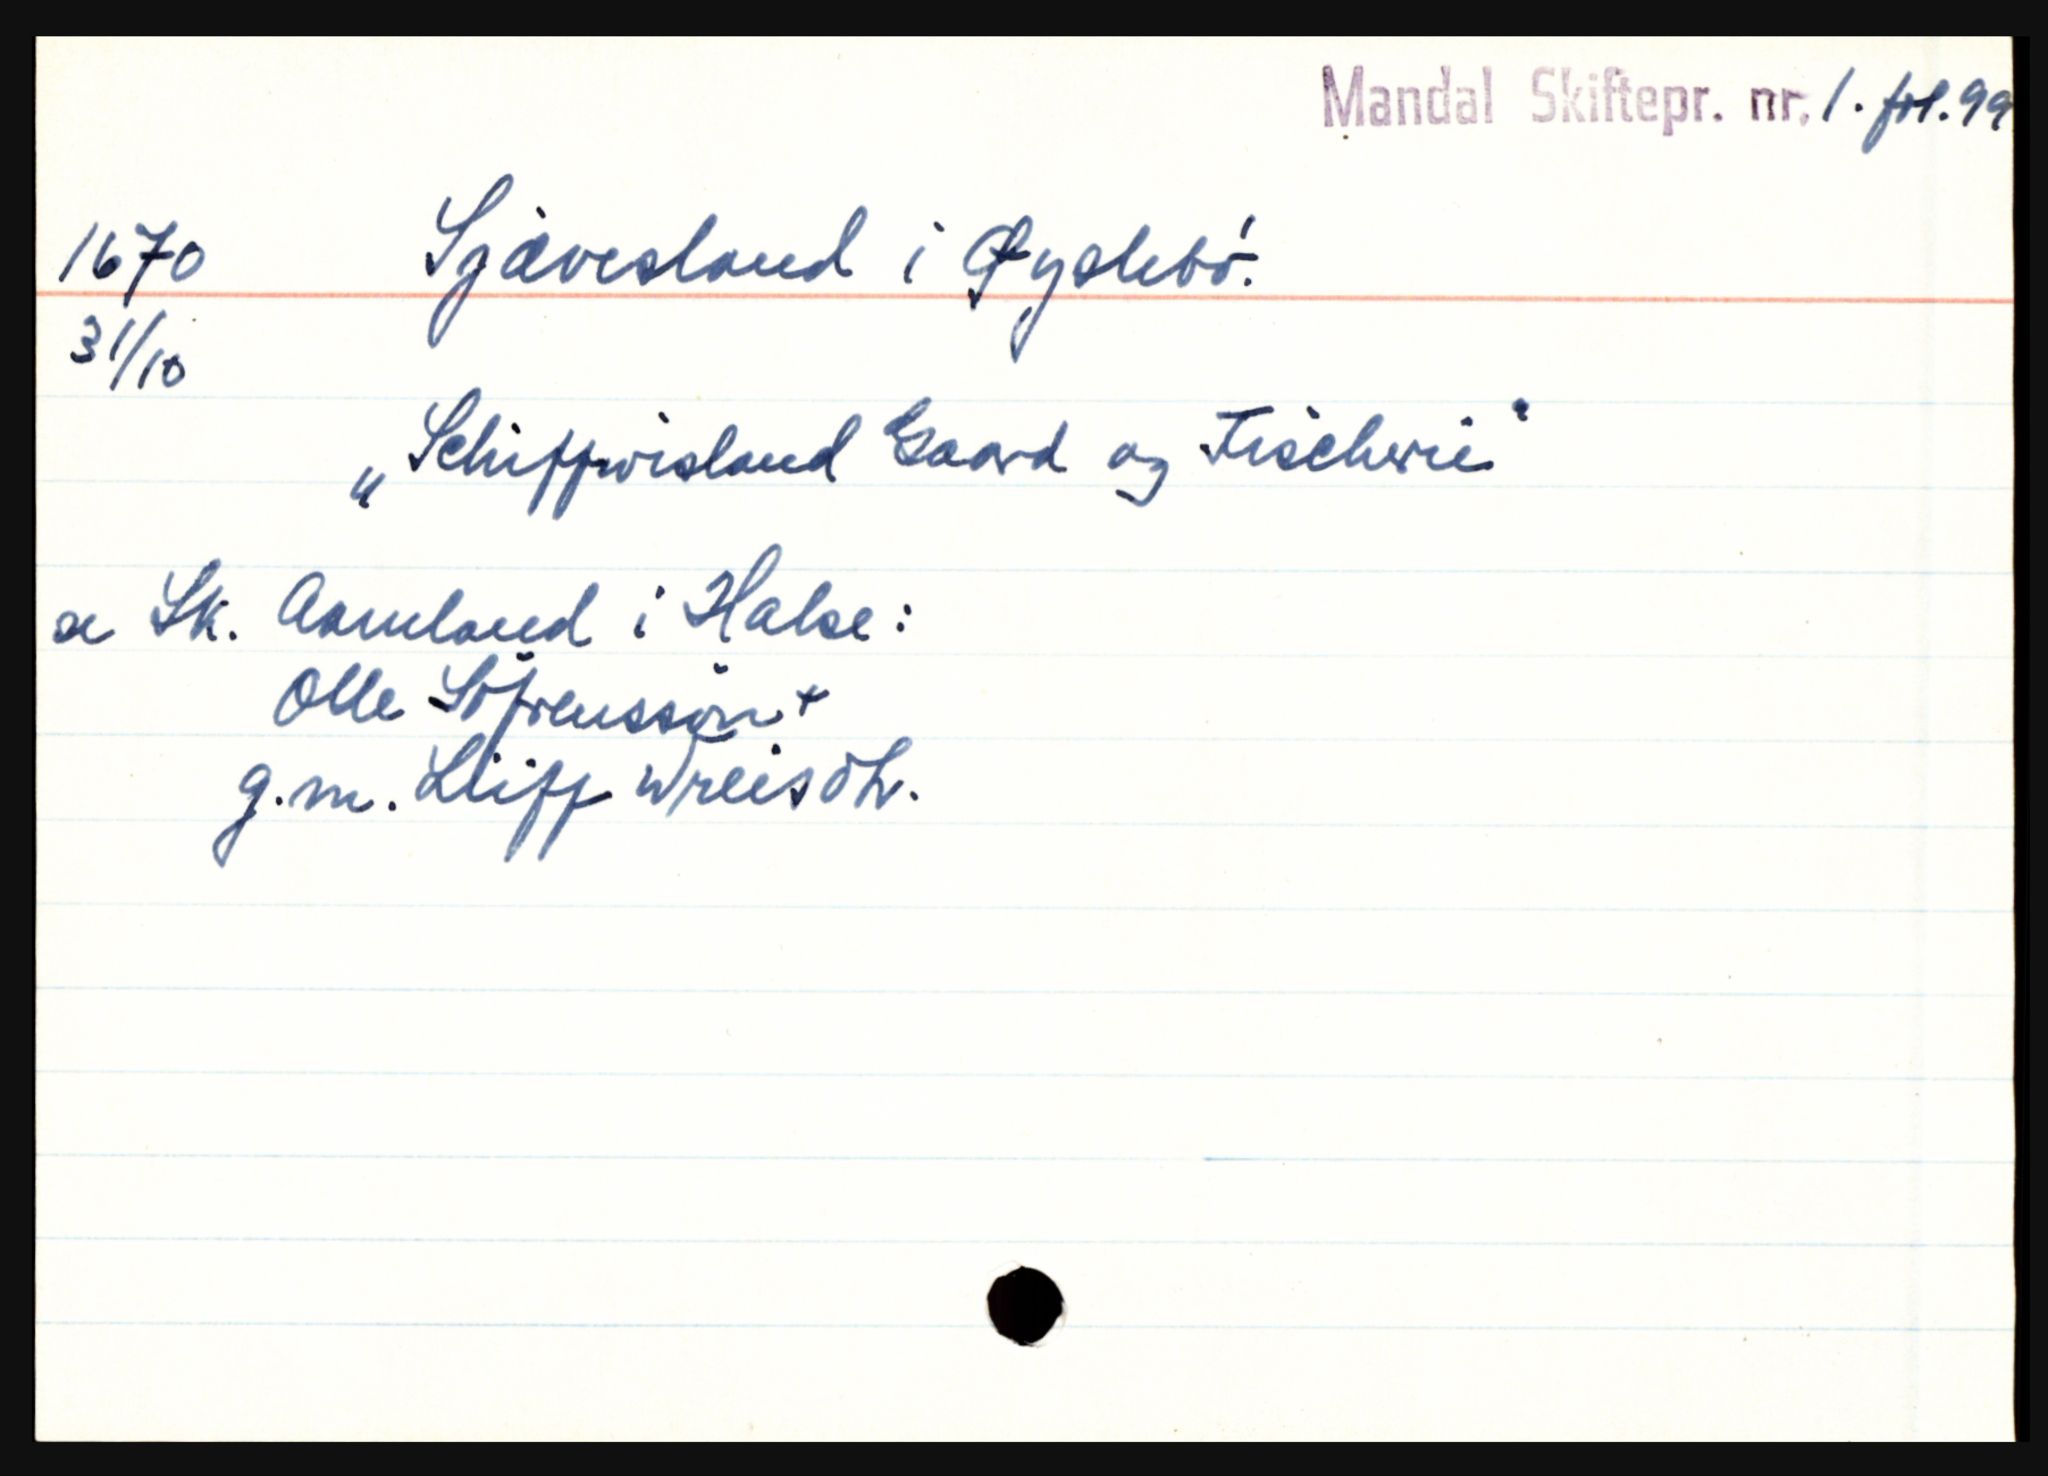 Mandal Skiftepr. nr. 1. fol. 99
1670 Sjavesland i Øyslebø.
31/10
„Schiffwisland Gaard og Fischerie"
se Sk. Aamland i Halse:
Olle Söfrensson +
g.m. Liiff